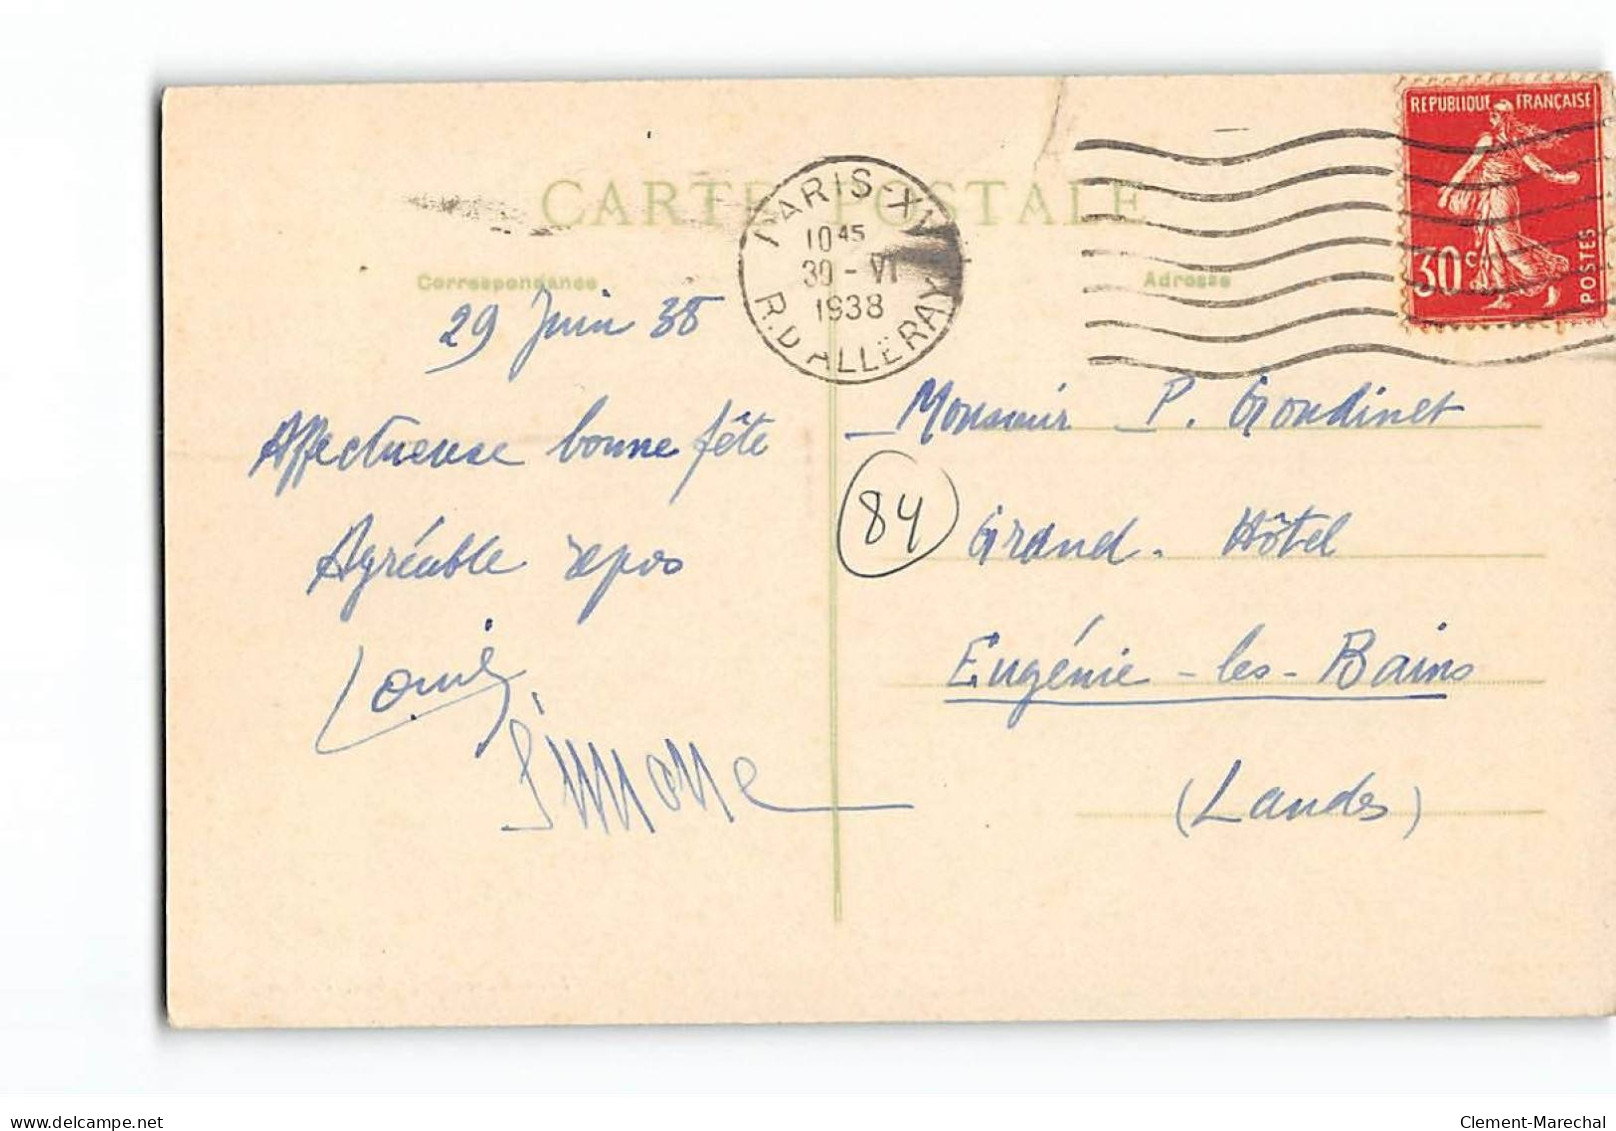 CARTE POSTALE
PARIS-XV
10 45
30 - VI
1938
R. D'ALLERAY
REPUBLIQUE FRANÇAISE
30c
POSTES
Correspondance
29 Juin 38
Affectueuse bonne fête
Agréable repos
Louis
Simone
Adresse
Monsieur P. Goudinet
84
Grand Hôtel
Eugénie-les-Bains
(Landes)
delcampe.net
Clement-Marechal